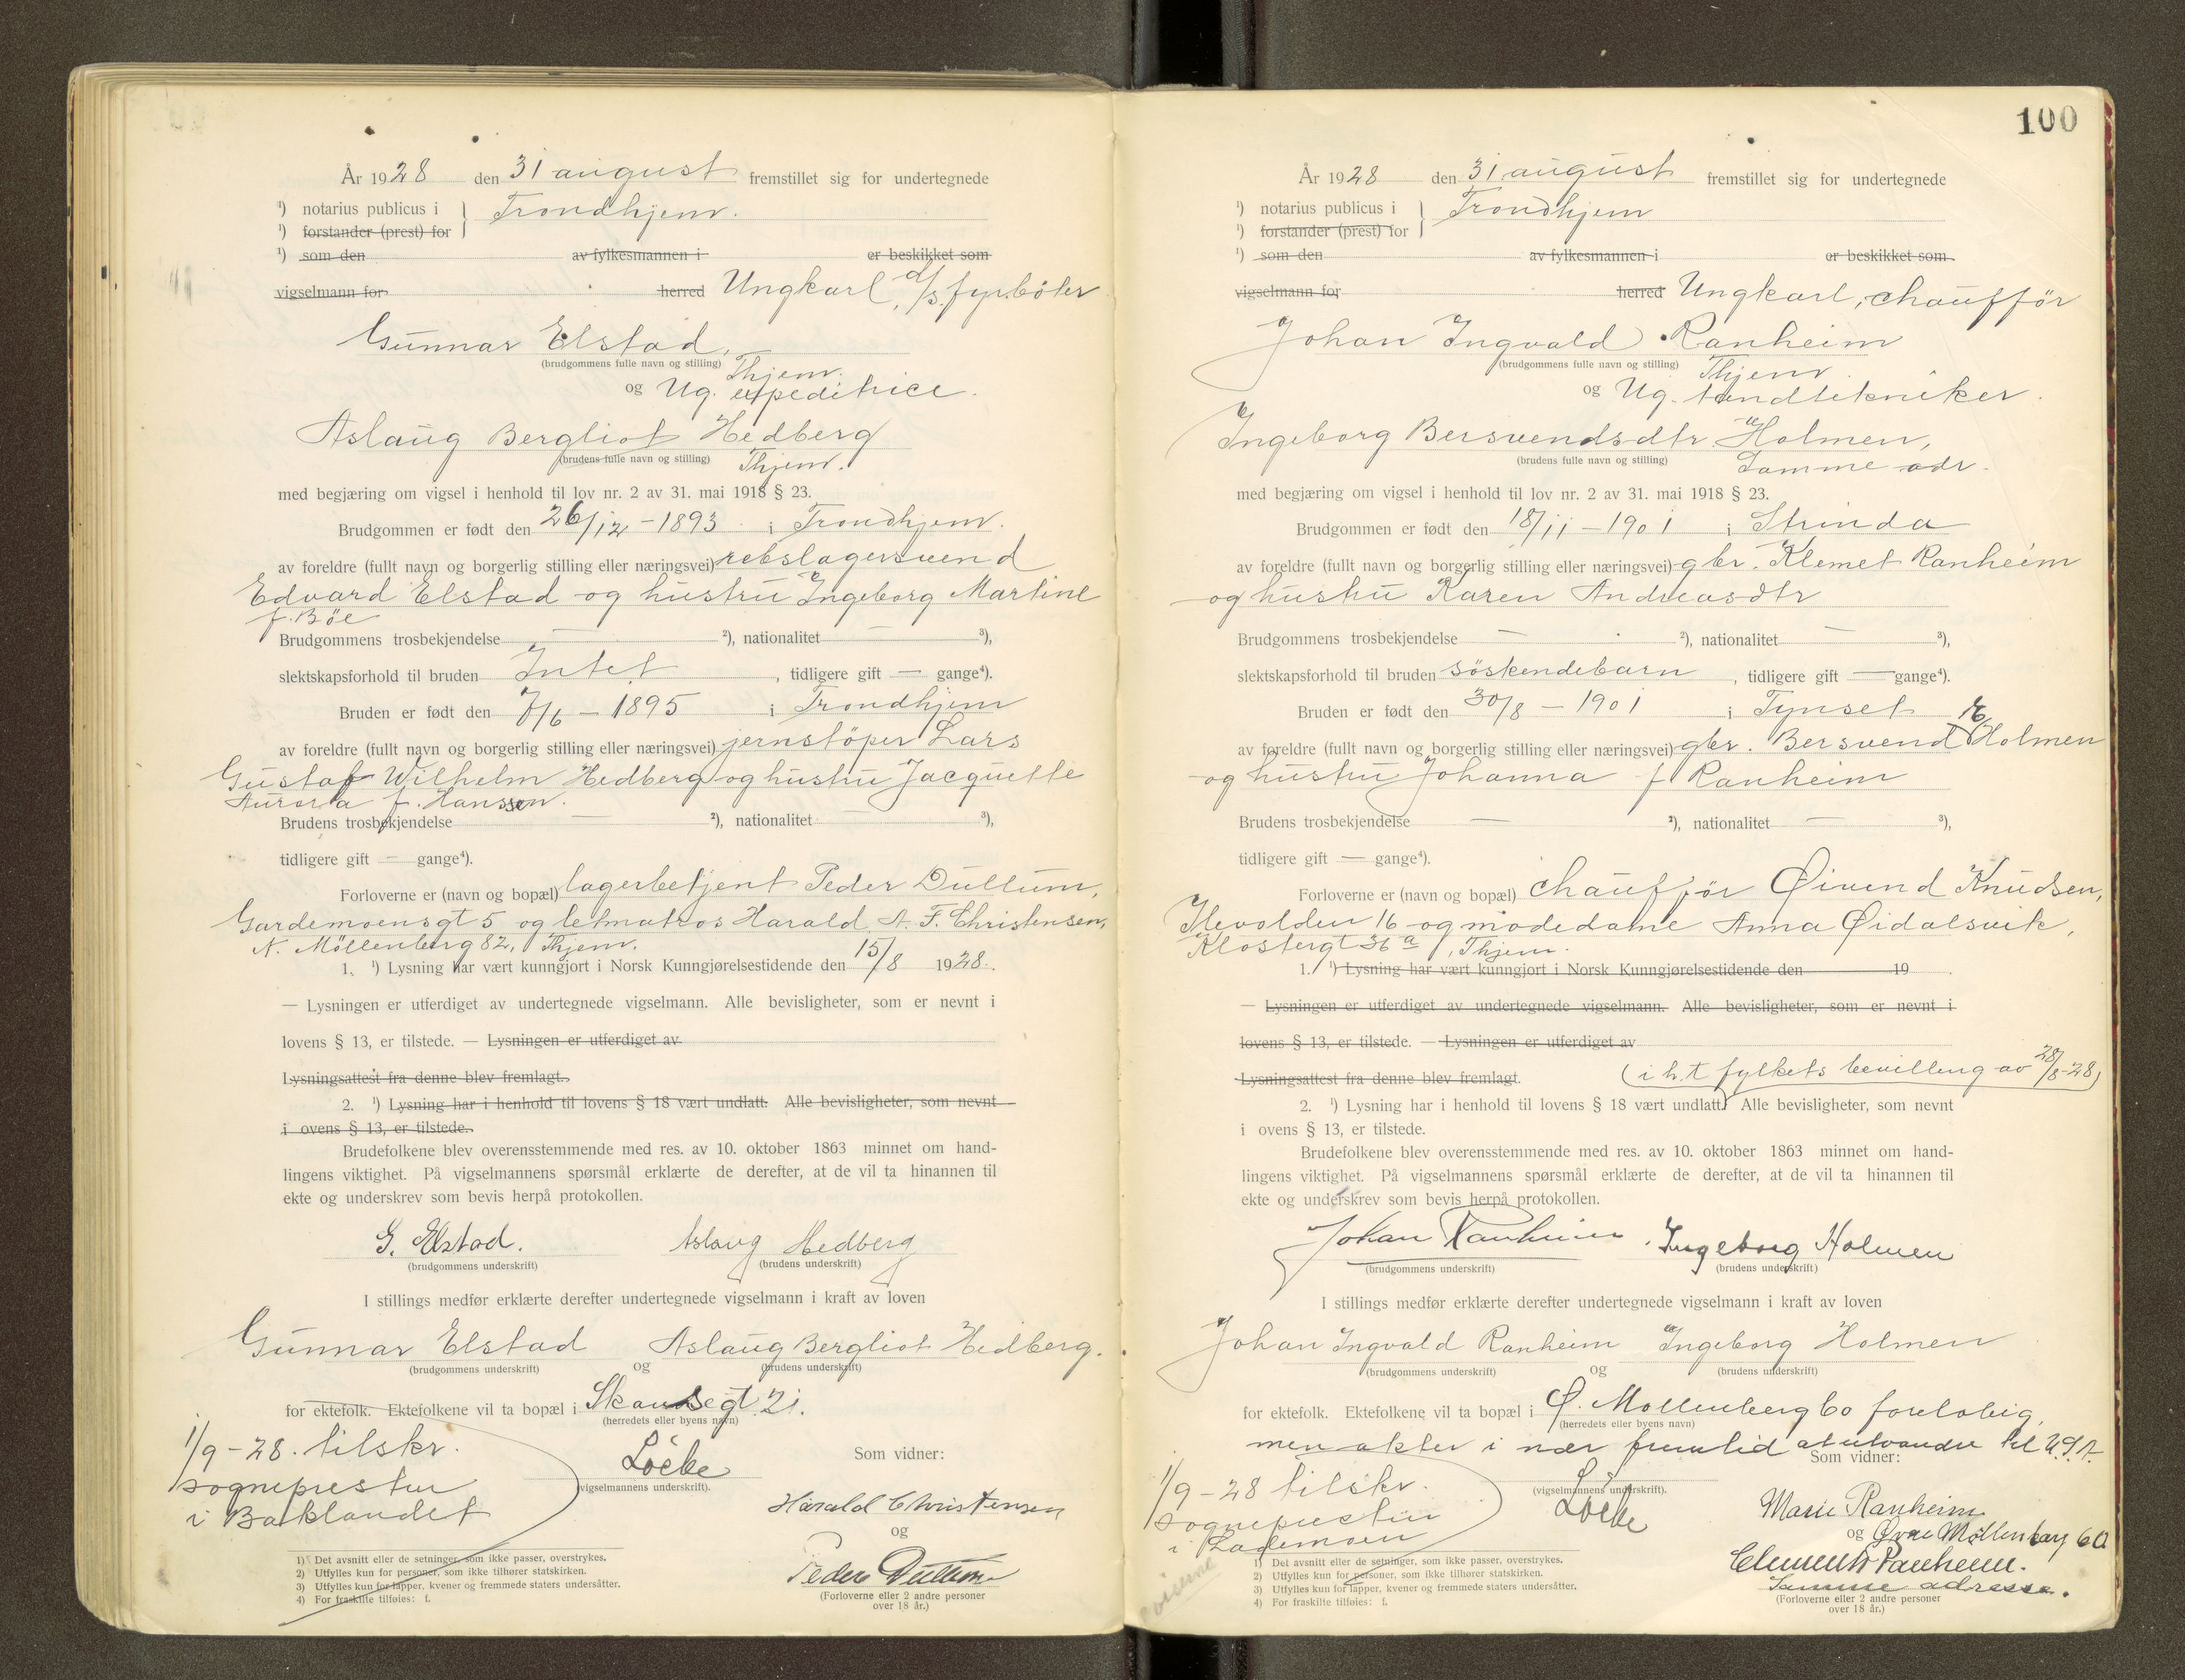 År 1928 den 31 august fremstillet sig for undertegnede
¹) notarius publicus i Trondhjem.
¹) forstander (prest) for
¹) som den av fylkesmannen i er beskikket som
vigselmann for herred Ungkarl, d/s. fyrbøter
Gunnar Elstad,
(brudgommens fulle navn og stilling) Thjem.
og Ug. expeditrice.
Aslaug Bergliot Hedberg
(brudens fulle navn og stilling) Thjem.
med begjæring om vigsel i henhold til lov nr. 2 av 31. mai 1918 § 23.
Brudgommen er født den 26/12 - 1893 i Trondhjem.
av foreldre (fullt navn og borgerlig stilling eller næringsvei) rebslagersvend
Edvard Elstad og hustru Ingeborg Martine
f. Böe
Brudgommens trosbekjendelse — ²), nationalitet — ³),
slektskapsforhold til bruden Intet, tidligere gift — gange⁴).
Bruden er født den 7/6 - 1895 i Trondhjem
av foreldre (fullt navn og borgerlig stilling eller næringsvei) jernstöper Lars
Gustaf Wilhelm Hedberg og hustru Jacquette
Aurora f. Hanssen.
Brudens trosbekjendelse — ²), nationalitet — ³),
tidligere gift — gange⁴).
Forloverne er (navn og bopæl) lagerbetjent Peder Dullum,
Gardemoensgt 5 og letmatros Harald A. F. Christensen,
N. Möllenberg 82, Thjem.
1. ¹) Lysning har vært kunngjort i Norsk Kunngjørelsestidende den 15/8 1928.
— Lysningen er utferdiget av undertegnede vigselmann. Alle bevisligheter, som er nevnt i
lovens § 13, er tilstede. — Lysningen er utferdiget av
Lysningsattest fra denne blev fremlagt.
2. ¹) Lysning har i henhold til lovens § 18 vært undlatt. Alle bevisligheter, som nevnt
i ovens § 13, er tilstede.
Brudefolkene blev overensstemmende med res. av 10. oktober 1863 minnet om hand-
lingens viktighet. På vigselmannens spørsmål erklærte de derefter, at de vil ta hinannen til
ekte og underskrev som bevis herpå protokollen.
G. Elstad. Aslaug Hedberg
(brudgommens underskrift) (brudens underskrift)
I stillings medfør erklærte derefter undertegnede vigselmann i kraft av loven
Gunnar Elstad Aslaug Bergliot Hedberg.
(brudgommens underskrift) og (brudens underskrift)
for ektefolk. Ektefolkene vil ta bopæl i Skansegt 21.
(herredets eller byens navn)
1/9 - 28. tilskr.
sognepresten
i Baklandet
Löcke
(vigselmannens underskrift).
Som vidner:
Harald Christensen
og
Peder Dullum
(Forloverne eller 2 andre personer
over 18 år.)
1) Det avsnitt eller de setninger, som ikke passer, overstrykes.
2) Utfylles kun for personer, som ikke tilhører statskirken.
3) Utfylles kun for lapper, kvener og fremmede staters undersåtter.
4) For fraskilte tilføies: f.
100
År 1928 den 31 august fremstillet sig for undertegnede
¹) notarius publicus i Trondhjem
¹) forstander (prest) for
¹) som den av fylkesmannen i er beskikket som
vigselmann for herred Ungkarl, chaufför
Johan Ingvald Ranheim
(brudgommens fulle navn og stilling) Thjem.
og Ug. tandtekniker.
Ingeborg Bersvendsdtr Holmen,
(brudens fulle navn og stilling) Samme adr.
med begjæring om vigsel i henhold til lov nr. 2 av 31. mai 1918 § 23.
Brudgommen er født den 18/11 - 1901 i Strinda
av foreldre (fullt navn og borgerlig stilling eller næringsvei) gbr. Klemet Ranheim
og hustru Karen Andreasdtr
Brudgommens trosbekjendelse — ²), nationalitet — ³),
slektskapsforhold til bruden söskendebarn, tidligere gift — gange⁴).
Bruden er født den 30/8 - 1901 i Tynset
av foreldre (fullt navn og borgerlig stilling eller næringsvei) gbr. Bersvend Holmen
og hustru Johanna f Ranheim
Brudens trosbekjendelse — ²), nationalitet — ³),
tidligere gift — gange⁴).
Forloverne er (navn og bopæl) chaufför Øivend Knudsen,
Ilevolden 16 og modedame Anna Øidalsvik,
Klostergt 36 a, Thjem.
1. ¹) Lysning har vært kunngjort i Norsk Kunngjørelsestidende den 19 .
— Lysningen er utferdiget av undertegnede vigselmann. Alle bevisligheter, som er nevnt i
lovens § 13, er tilstede. — Lysningen er utferdiget av
Lysningsattest fra denne blev fremlagt. (i h. t fylkets bevilling av 28/8-28)
2. ¹) Lysning har i henhold til lovens § 18 vært undlatt. Alle bevisligheter, som nevnt
i ovens § 13, er tilstede.
Brudefolkene blev overensstemmende med res. av 10. oktober 1863 minnet om hand-
lingens viktighet. På vigselmannens spørsmål erklærte de derefter, at de vil ta hinannen til
ekte og underskrev som bevis herpå protokollen.
Johan Ranheim Ingeborg Holmen
(brudgommens underskrift) (brudens underskrift)
I stillings medfør erklærte derefter undertegnede vigselmann i kraft av loven
Johan Ingvald Ranheim Ingeborg Holmen
(brudgommens underskrift) og (brudens underskrift)
for ektefolk. Ektefolkene vil ta bopæl i Ø. Mollenberg 60 foreløbig,
(herredets eller byens navn)
men akter i nær fremtid at utvandre til U.S.A.
1/9 - 28 tilskr.
sognepresten
i Lademoen
(vigselmannens underskrift).
Löcke
Som vidner:
Marie Ranheim
og Øvre Möllenberg 60
Clement Ranheim.
Samme adresse.
(Forloverne eller 2 andre personer
over 18 år.)
1) Det avsnitt eller de setninger, som ikke passer, overstrykes.
2) Utfylles kun for personer, som ikke tilhører statskirken.
3) Utfylles kun for lapper, kvener og fremmede staters undersåtter.
4) For fraskilte tilføies: f.